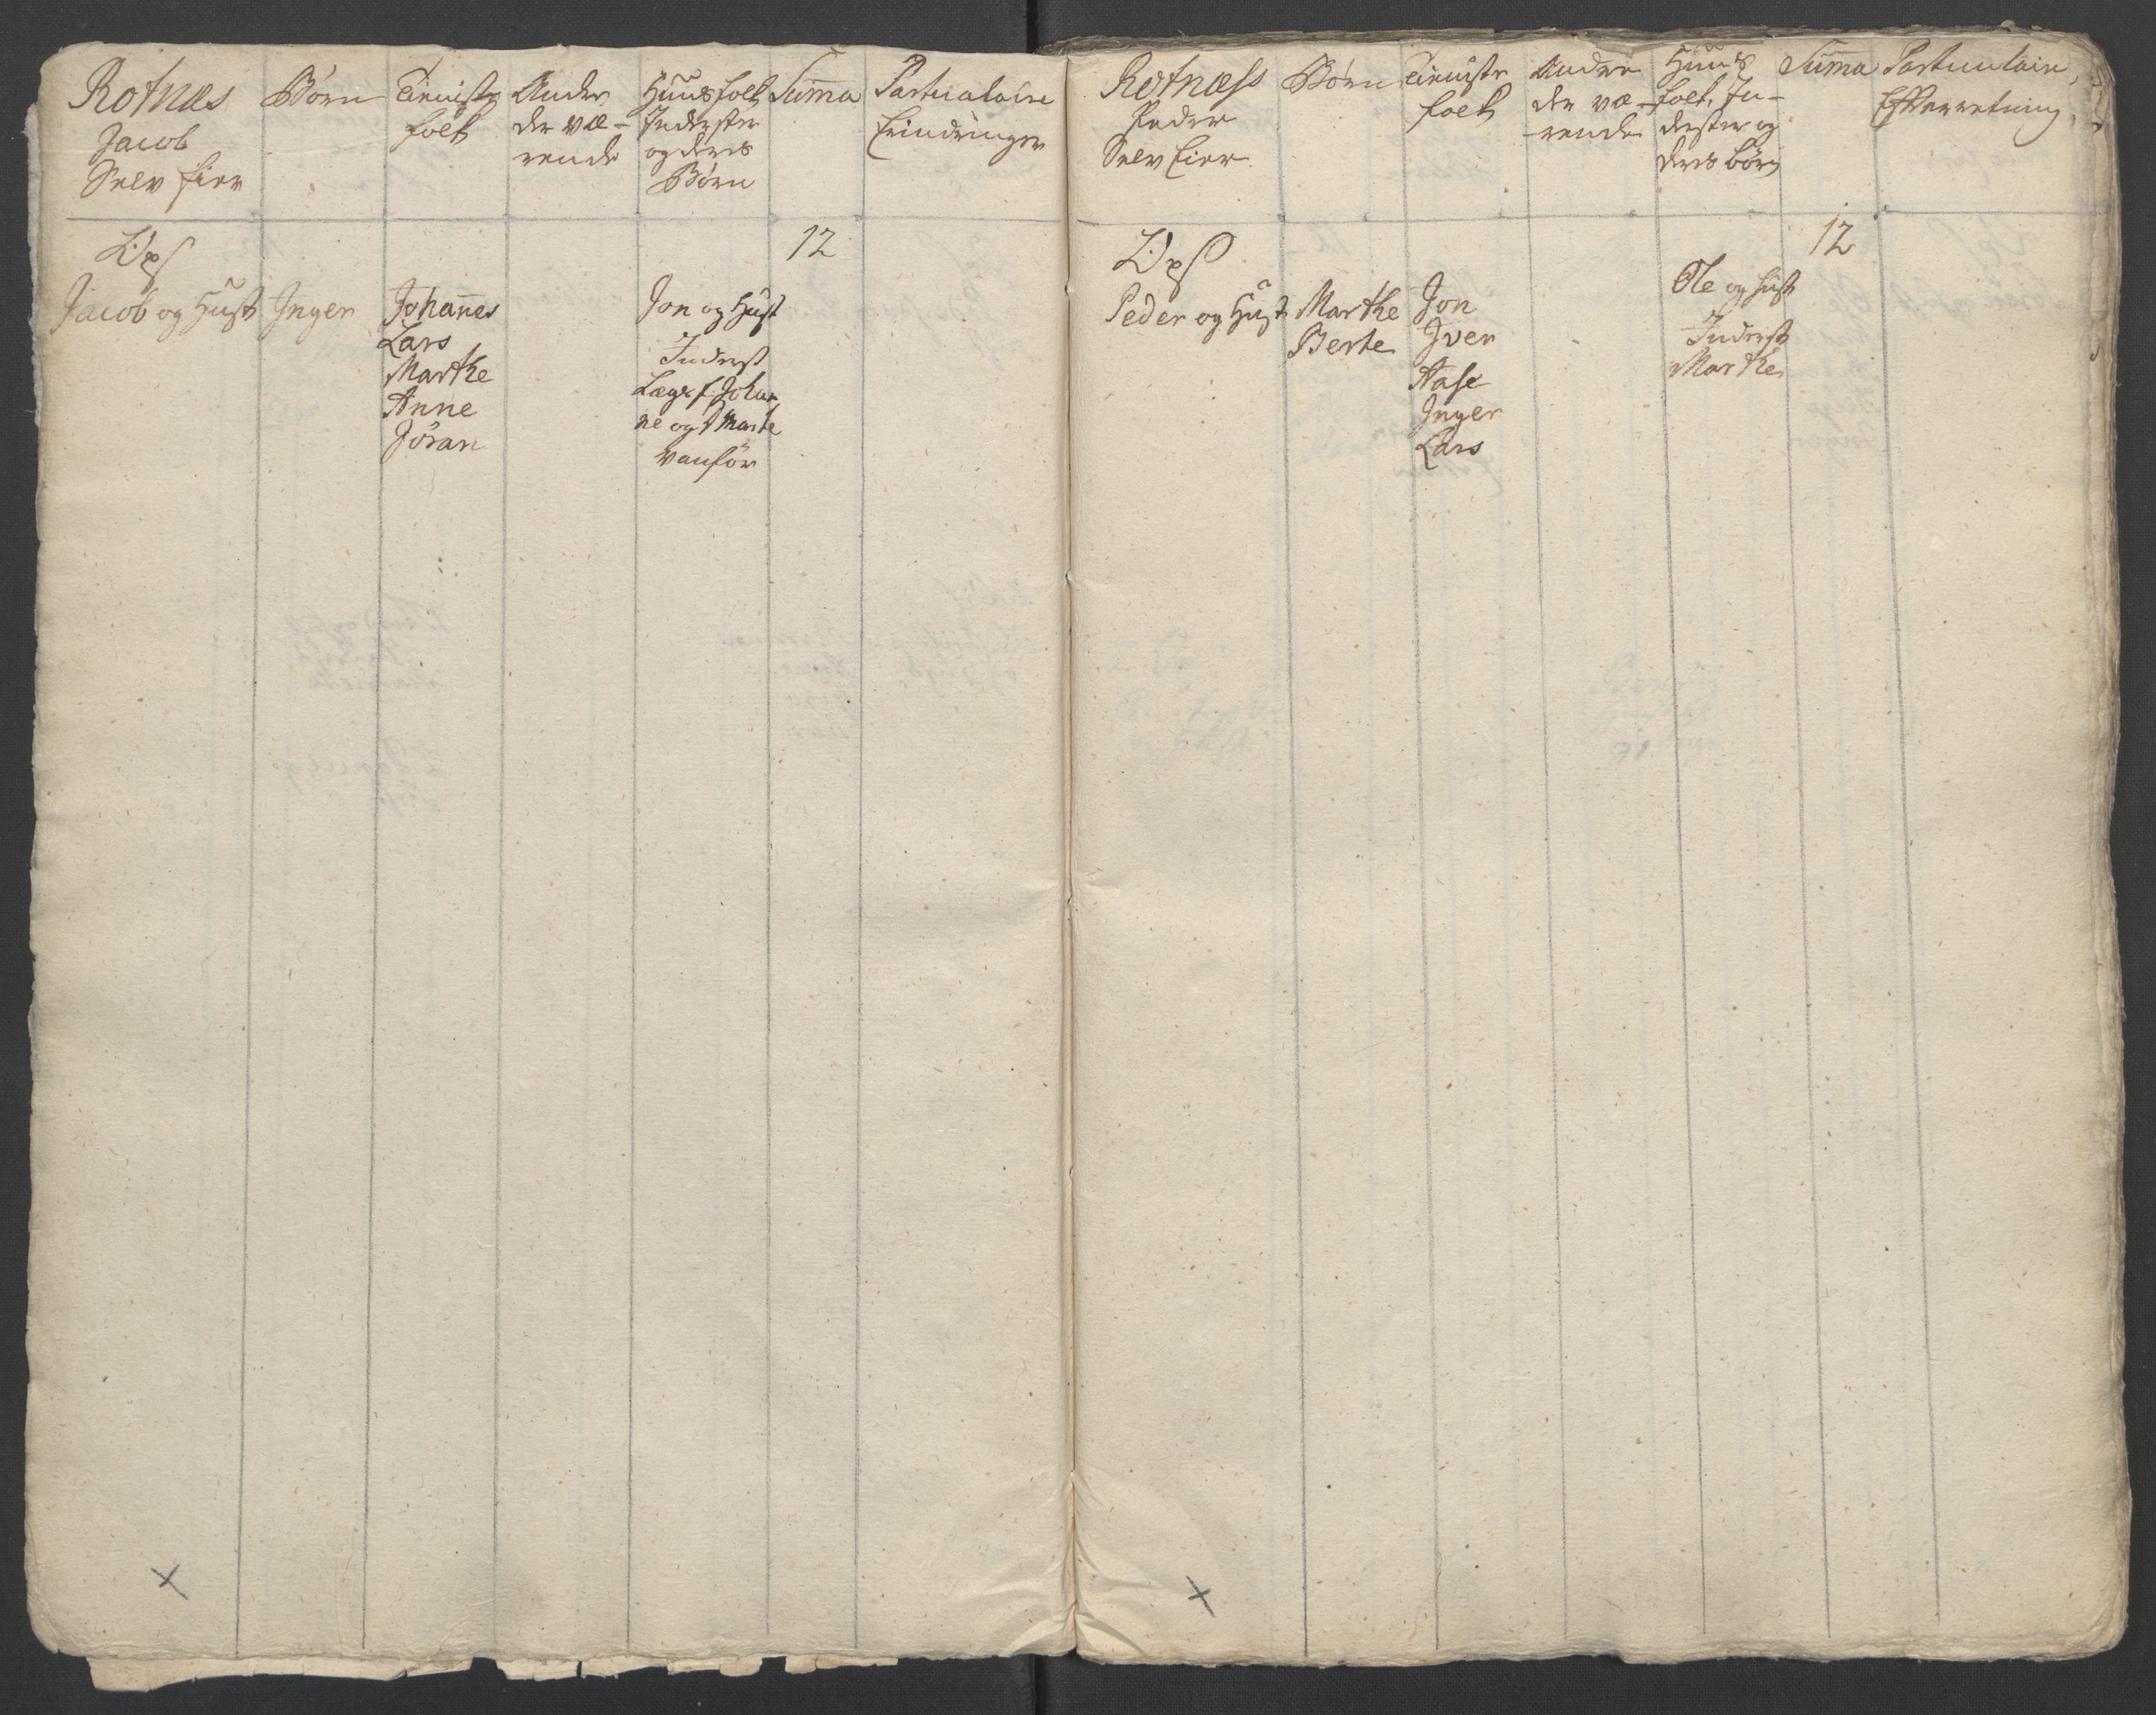 Rotnæs
Jacob
Selv Eier
Børn
Tieniste
folk
Andre
der væ-
rende
Huusfolk
Inderster
og deres
Børn
Summa
Particulaire
Erindringer
Jacob og Hust
Inger
Johannes
Lars
Marthe
Anne
Jöran
Jon og Hust
Inderst
Lægd f Johan
ne og Marte
vanför
12
Rotnæss
Peder
Selv Eier
Børn
Tieniste
folk
Andre
der væ-
rende
Huus
folk, In-
derster og
deres børn
Summa
Particulaire
Efterretning
Peder og Hust
Marthe
Berte
Jon
Iver
Aase
Inger
Lars
Ole og Hust
Inderst
Marthe
12